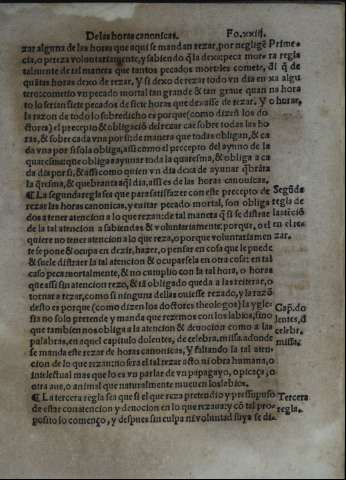 De las horas canonicas. Fo.xxiij.
zar alguna de las horas que aqui se mandan rezar, por neglige Prime
cia, o pereza voluntariamente, y sabiendo q̃ la dexa: peca mor ra regla
talmente de tal manera que tantos pecados mortales comete, di q̃ de
quãtas horas dexo de rezar. Y si dexa de rezar todo vn dia en xa algu
tero: cometio vn pecado mortal tan grande & tan graue quan na hora
to lo seriã siete pecados de siete horas que dexasse de rezar. Y o horas,
la razon de todo lo suso dicho es porque (como dizen los do
ctores) el precepto & obligaciõ de rezar cae sobre todas las ho
ras, & sobre cada vna por si: de manera que todas obligan, & ca
da vna por si sola obliga, assi como el precepto del ayuno de la
quaresma: que obliga a ayunar toda la quaresma, & obliga a ca
da dia por si, & assi como quien vn dia dexa de ayunar q̃brãta
la q̃resma, & quebranta aq̃l dia, assi es de las horas canonicas.
¶ La segunda regla es que para satisfazer con este precepto de Segũda
rezar las horas canonicas, y euitar pecado mortal, son obliga regla de
dos a tener atencion a lo que rezan: de tal manera q̃ si se distrae la atẽciõ
de la tal atencion a sabiendas & voluntariamente: porque, o el en el re
quiere no tener atencion a lo que reza, o porque voluntariamen zar.
te se pone & ocupa en dezir, hazer, o pensar en cosa que le puede
& suele distraer la tal atencion & ocuparsela en otra cosa: en tal
caso peca mortalmente, & no cumplio con la tal hora, o horas
que assi sin atencion rezo, & es obligado queda a las reiterar, o
tornar a rezar, como si ninguna dellas ouiesse rezado, y la razõ
desto es porque (como dizen los doctores theologos) la ygle Cap. do
sia no solo pretende y manda que rezemos con los labios, sino lentes, d̃
que tambien nos obliga a la atencion & deuocion como a las celebr.
palabras, en aquel capitulo dolentes, de celebra. missa. adonde missa.
se manda este rezar de horas canonicas. Y faltando la tal aten
cion de lo que rezan: no sera el tal rezar acto ni obra humana, o
intelectual mas que lo es vn parlar de vn papagayo, o picaça, o
otra aue, o animal que naturalmente mueuen los labios.
¶ La tercera regla sea que si el que reza pretendio y pressupuso Tercera
de estar con atencion y deuocion en lo que rezaua: y cõ tal pro- regla.
posito lo començo, y despues sin culpa ni voluntad suya se di-